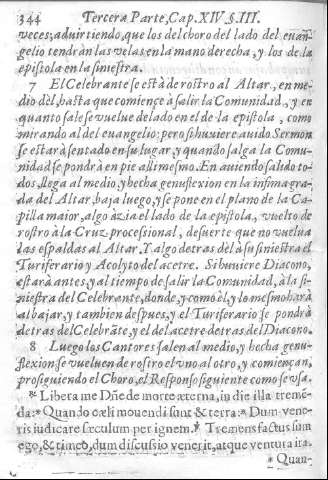 344 Tercera Parte, Cap. XIV. §. III.
veces; aduirtiendo, que los del choro del lado del euan-
gelio tendràn las velas en la mano derecha, y los de la
epistola en la sinestra.
7 El Celebrante se està de rostro al Altar, en me-
dio dèl, hasta que comiençe à salir la Comunidad, y en
quanto sale se vuelue de lado en el de la epistola, como
mirando al del euangelio: pero si huuiere auido Sermon
se estarà sentado en su lugar, y quando salga la Comu-
nidad se pondrà en pie alli mesmo. En auiendo salido to-
dos, llega al medio, y hecha genuflexion en la infima gra-
da del Altar, baja luego, y se pone en el plano de la Ca-
pilla maior, algo àzia el lado de la epistola, vuelto de
rostro à la Cruz procesional, desuerte que no vuelua
las espaldas al Altar. Y algo detras dèl à su siniestra el
Turiferario y Acolyto del acetre. Si huuiere Diacono,
estarà antes, y al tiempo de salir la Comunidad, à la si-
niestra del Celebrante, donde, y como èl, y lo mesmo harà
al bajar, y tambien despues, y el Turiferario se pondrà
detras del Celebrãte, y el del acetre detras del Diacono.
8 Luego los Cantores salen al medio, y hecha genu-
flexion se vueluen de rostro el vno al otro, y comiençan,
prosiguiendo el Choro, el Responso siguiente como se vsa.
℟. Libera me Dñe de morte æterna, in die illa treme-
da:* Quando cæli mouendi sunt & terra:* Dum vene-
ris iudicare sæculum per ignem. ℣. Tremens factus sum
ego, & timeo, dum discussio venerit, atque ventura ira.
* Quan-